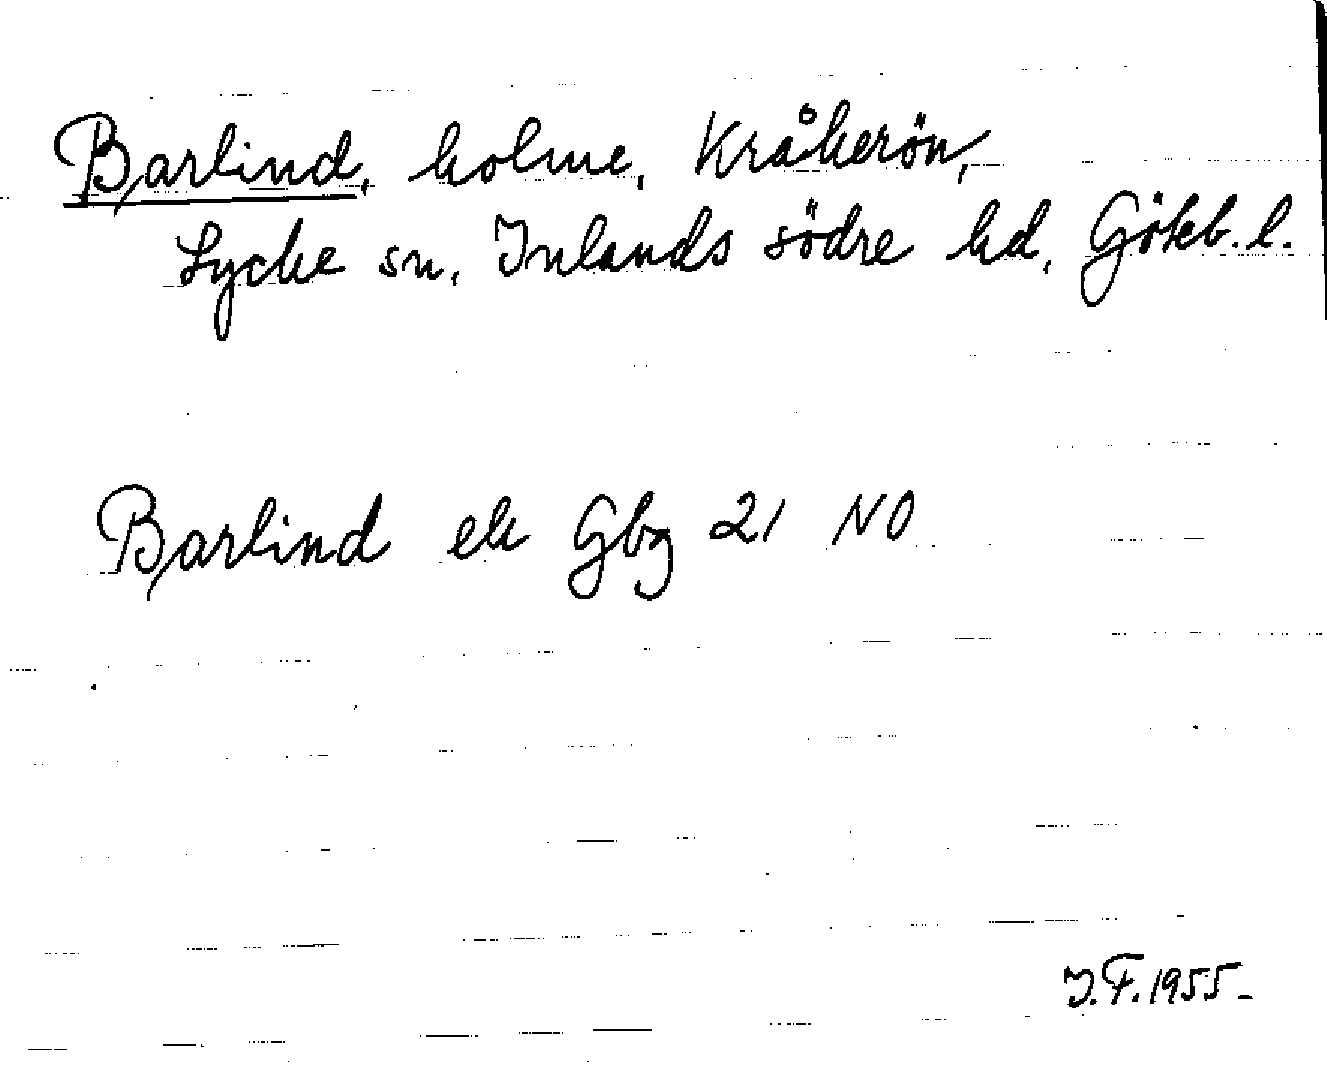 Barlind, holme, Kråkerön,
Lycke sn, Inlands södre hd, Göteb. l.
Barlind ek Gbg 21 NO
I.F. 1955-